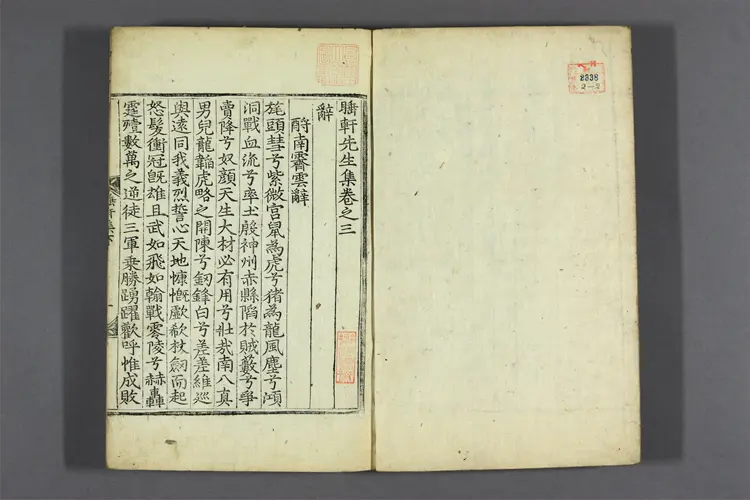 2338
2-2
睡軒先生集卷之三
辭
酹南霽雲辭
旄頭彗兮紫微宮鼠為虎兮猪為龍風塵兮澒
洞戰血流兮率土殷神州赤縣陷於賊藪兮爭
賣降兮奴顔天生大材必有用兮壯哉南八真
男兒龍韜虎略之開陳兮釰鋒白兮差差維巡
與遠同我義烈誓心天地慷慨歔欷杖劒而起
怒髮衝冠旣雄且武如飛如翰戰零陵兮赫轟
霆殪數萬之逋徒三軍乘勝踴躍歡呼惟成敗